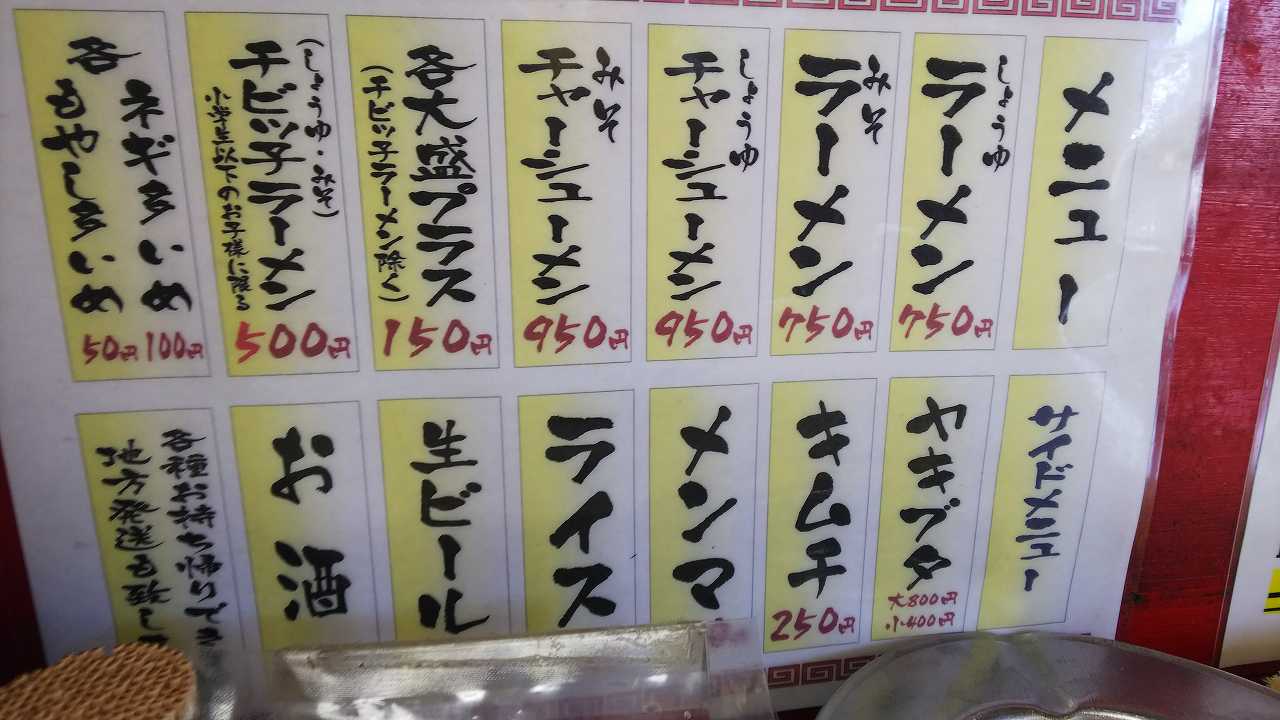 メニュー
しょうゆ
ラーメン
750円
みそ
ラーメン
750円
しょうゆ
チャーシューメン
950円
みそ
チャーシューメン
950円
各大盛プラス
(チビッ子ラーメン除く)
150円
(しょうゆ・みそ)
チビッ子ラーメン
小学生以下のお子様に限る
500円
各
ネギ多いめ
100円
もやし多いめ
50円
サイドメニュー
ヤキブタ
大800円
小400円
キムチ
250円
メンマ
ライス
生ビール
お酒
各種お持ち帰りでき
地方発送も致し